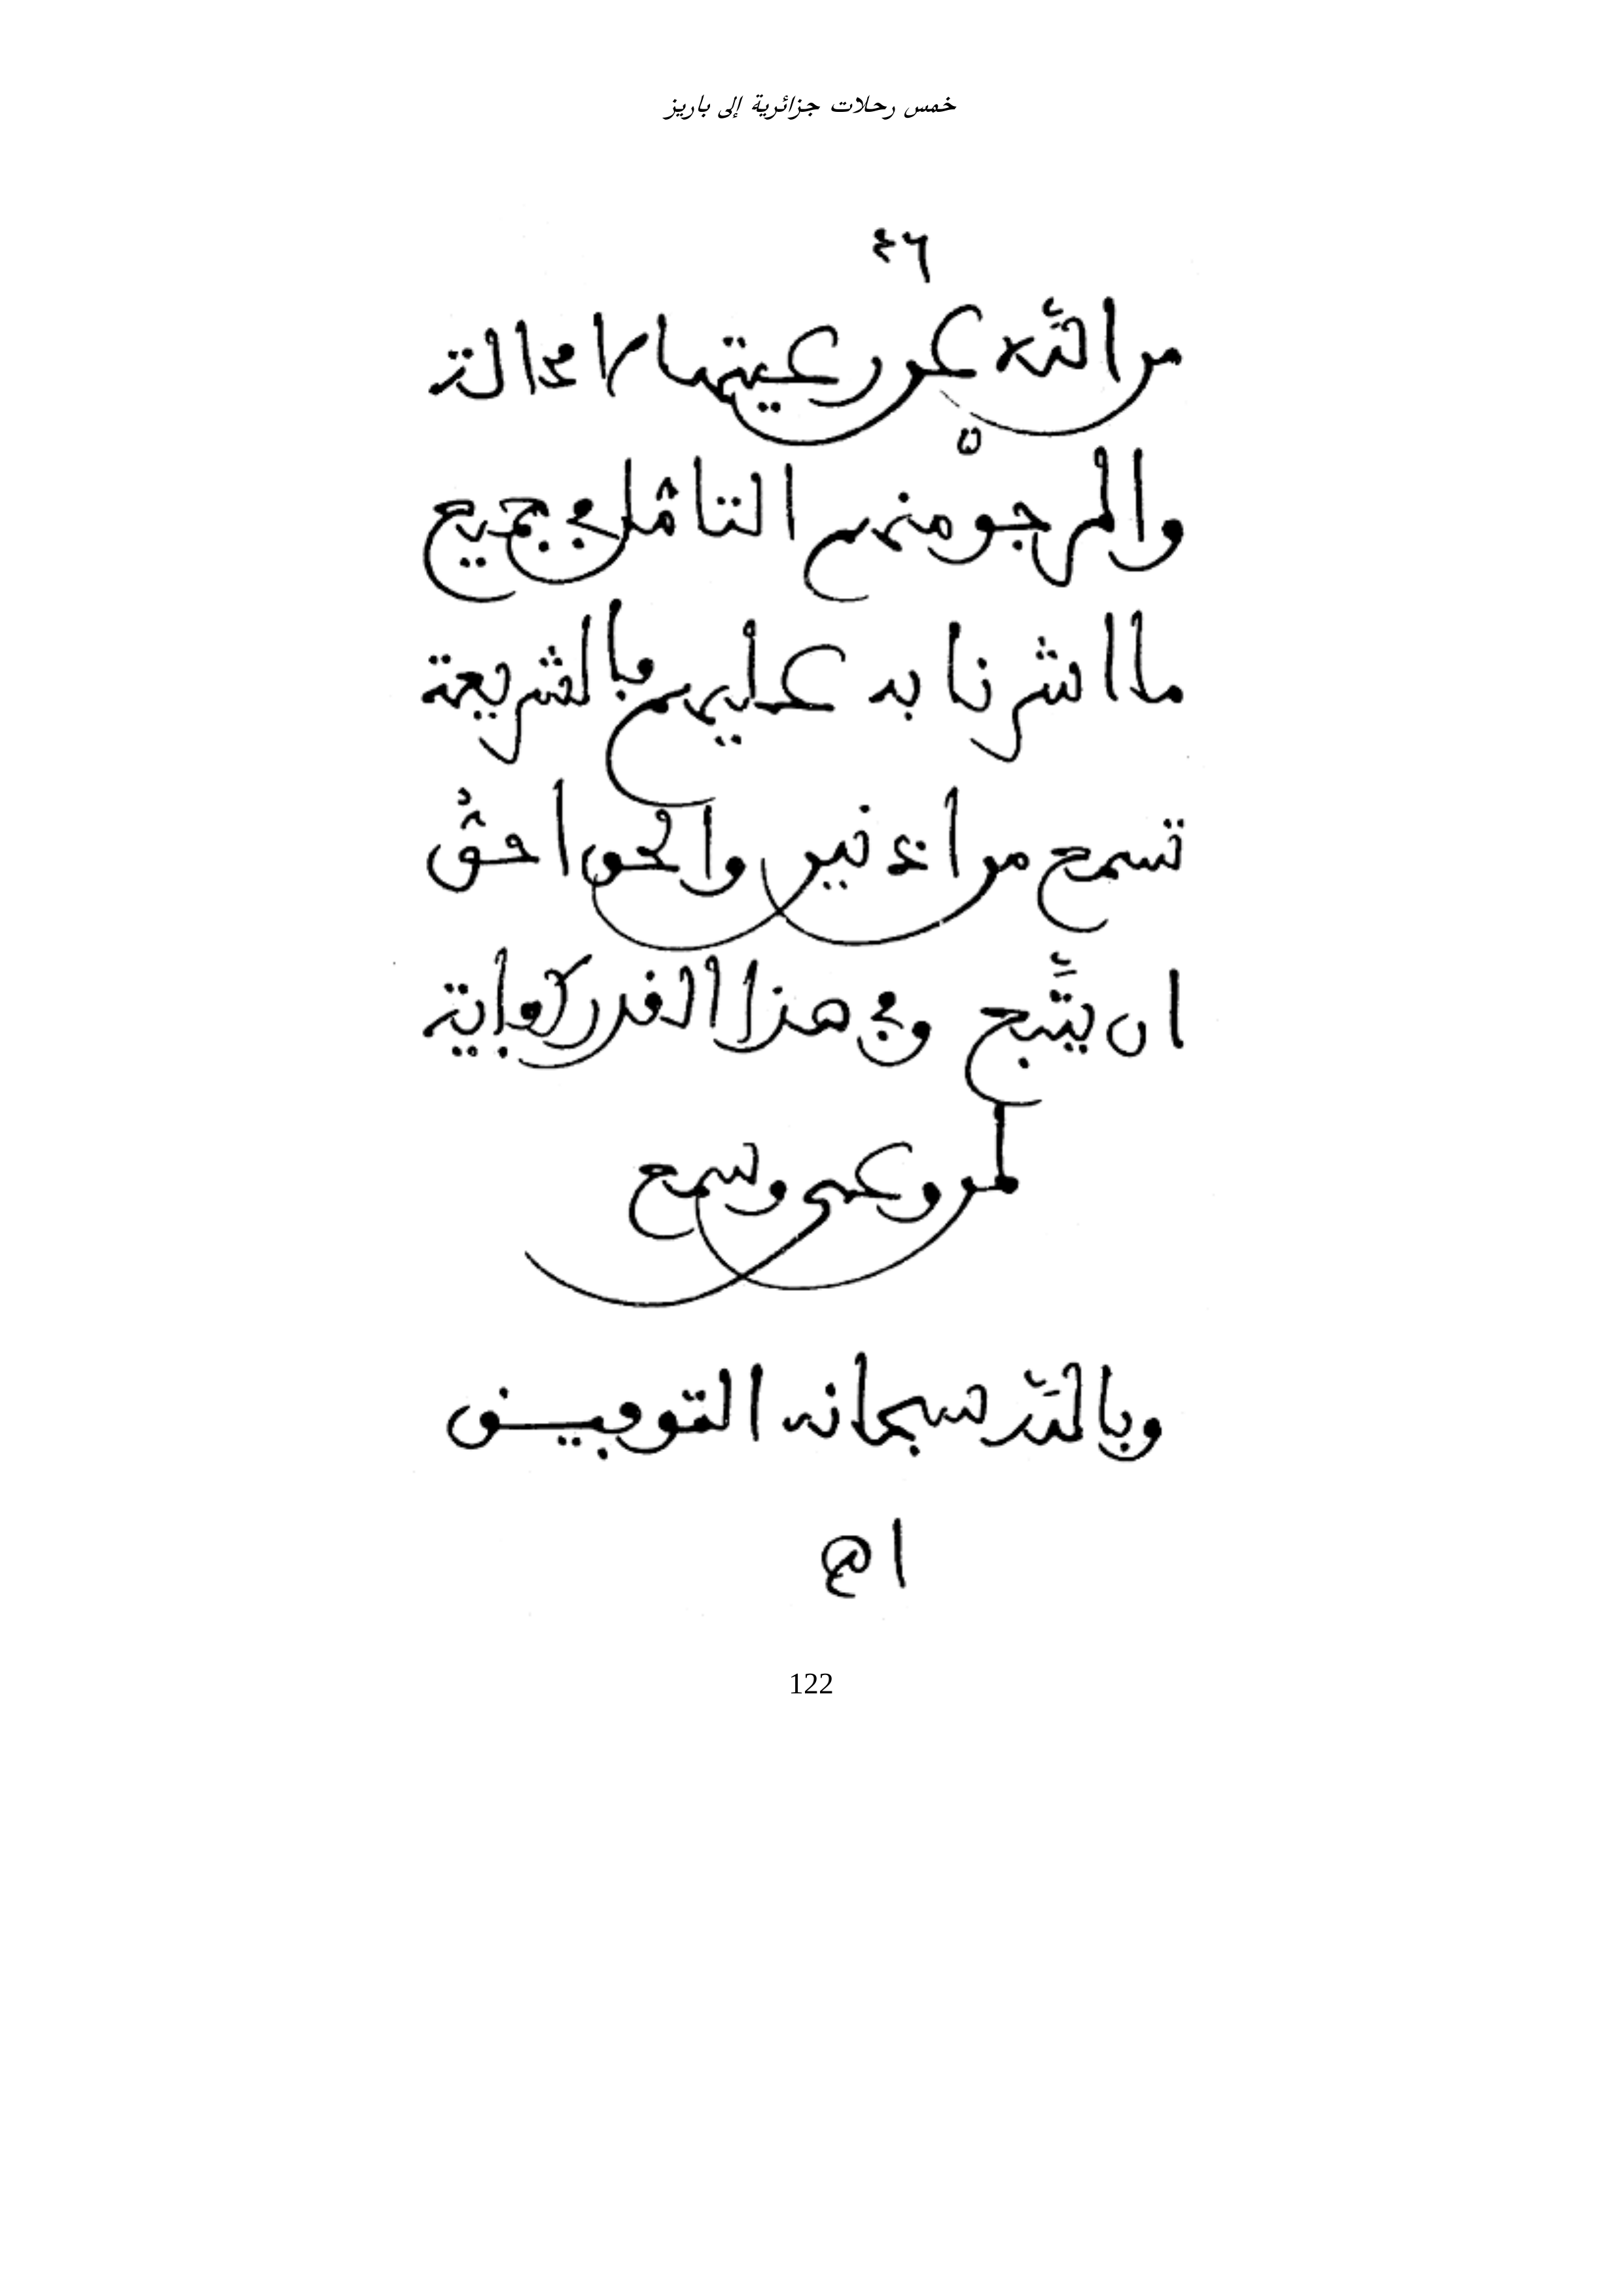 خمس رحلات جزائرية إلى باريز
٤٦
من الله عن رعيتها لا محالة
والمرجوّ منهم التأمّل في جميع
ما اشرنا به عليهم فالشريعة
تسمع من اذنين والحق احقّ
ان يتّبع وفي هذا القدر كفاية
لمن وعى وسمع
وبالله سبحانه التوفيـــق
اهـ
122